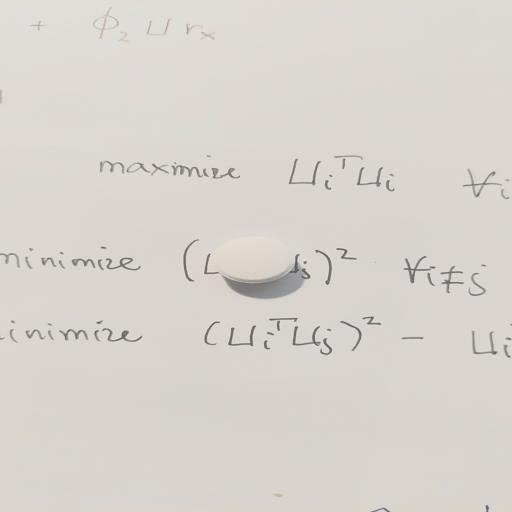 + ϕ₂ U rₓ
maximize UᵢᵀUᵢ ∀i
minimize ( ⱼ)² ∀i≠j
inimize (UᵢᵀUⱼ)² − Uᵢ